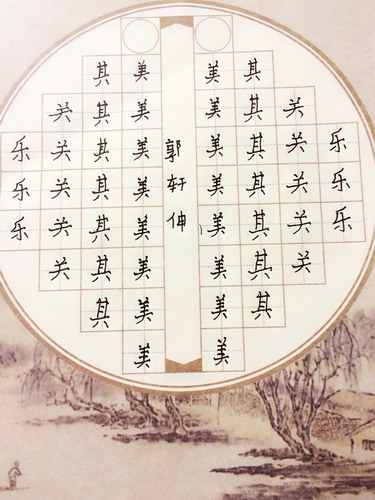 乐乐乐
关关关关关
其其其其其其其
美美美美美美美美
郭轩伸
美美美美美美美美
其其其其其其其
关关关关关
乐乐乐